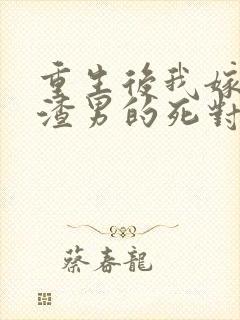 重生後我嫁
渣男的死對
蔡春龍